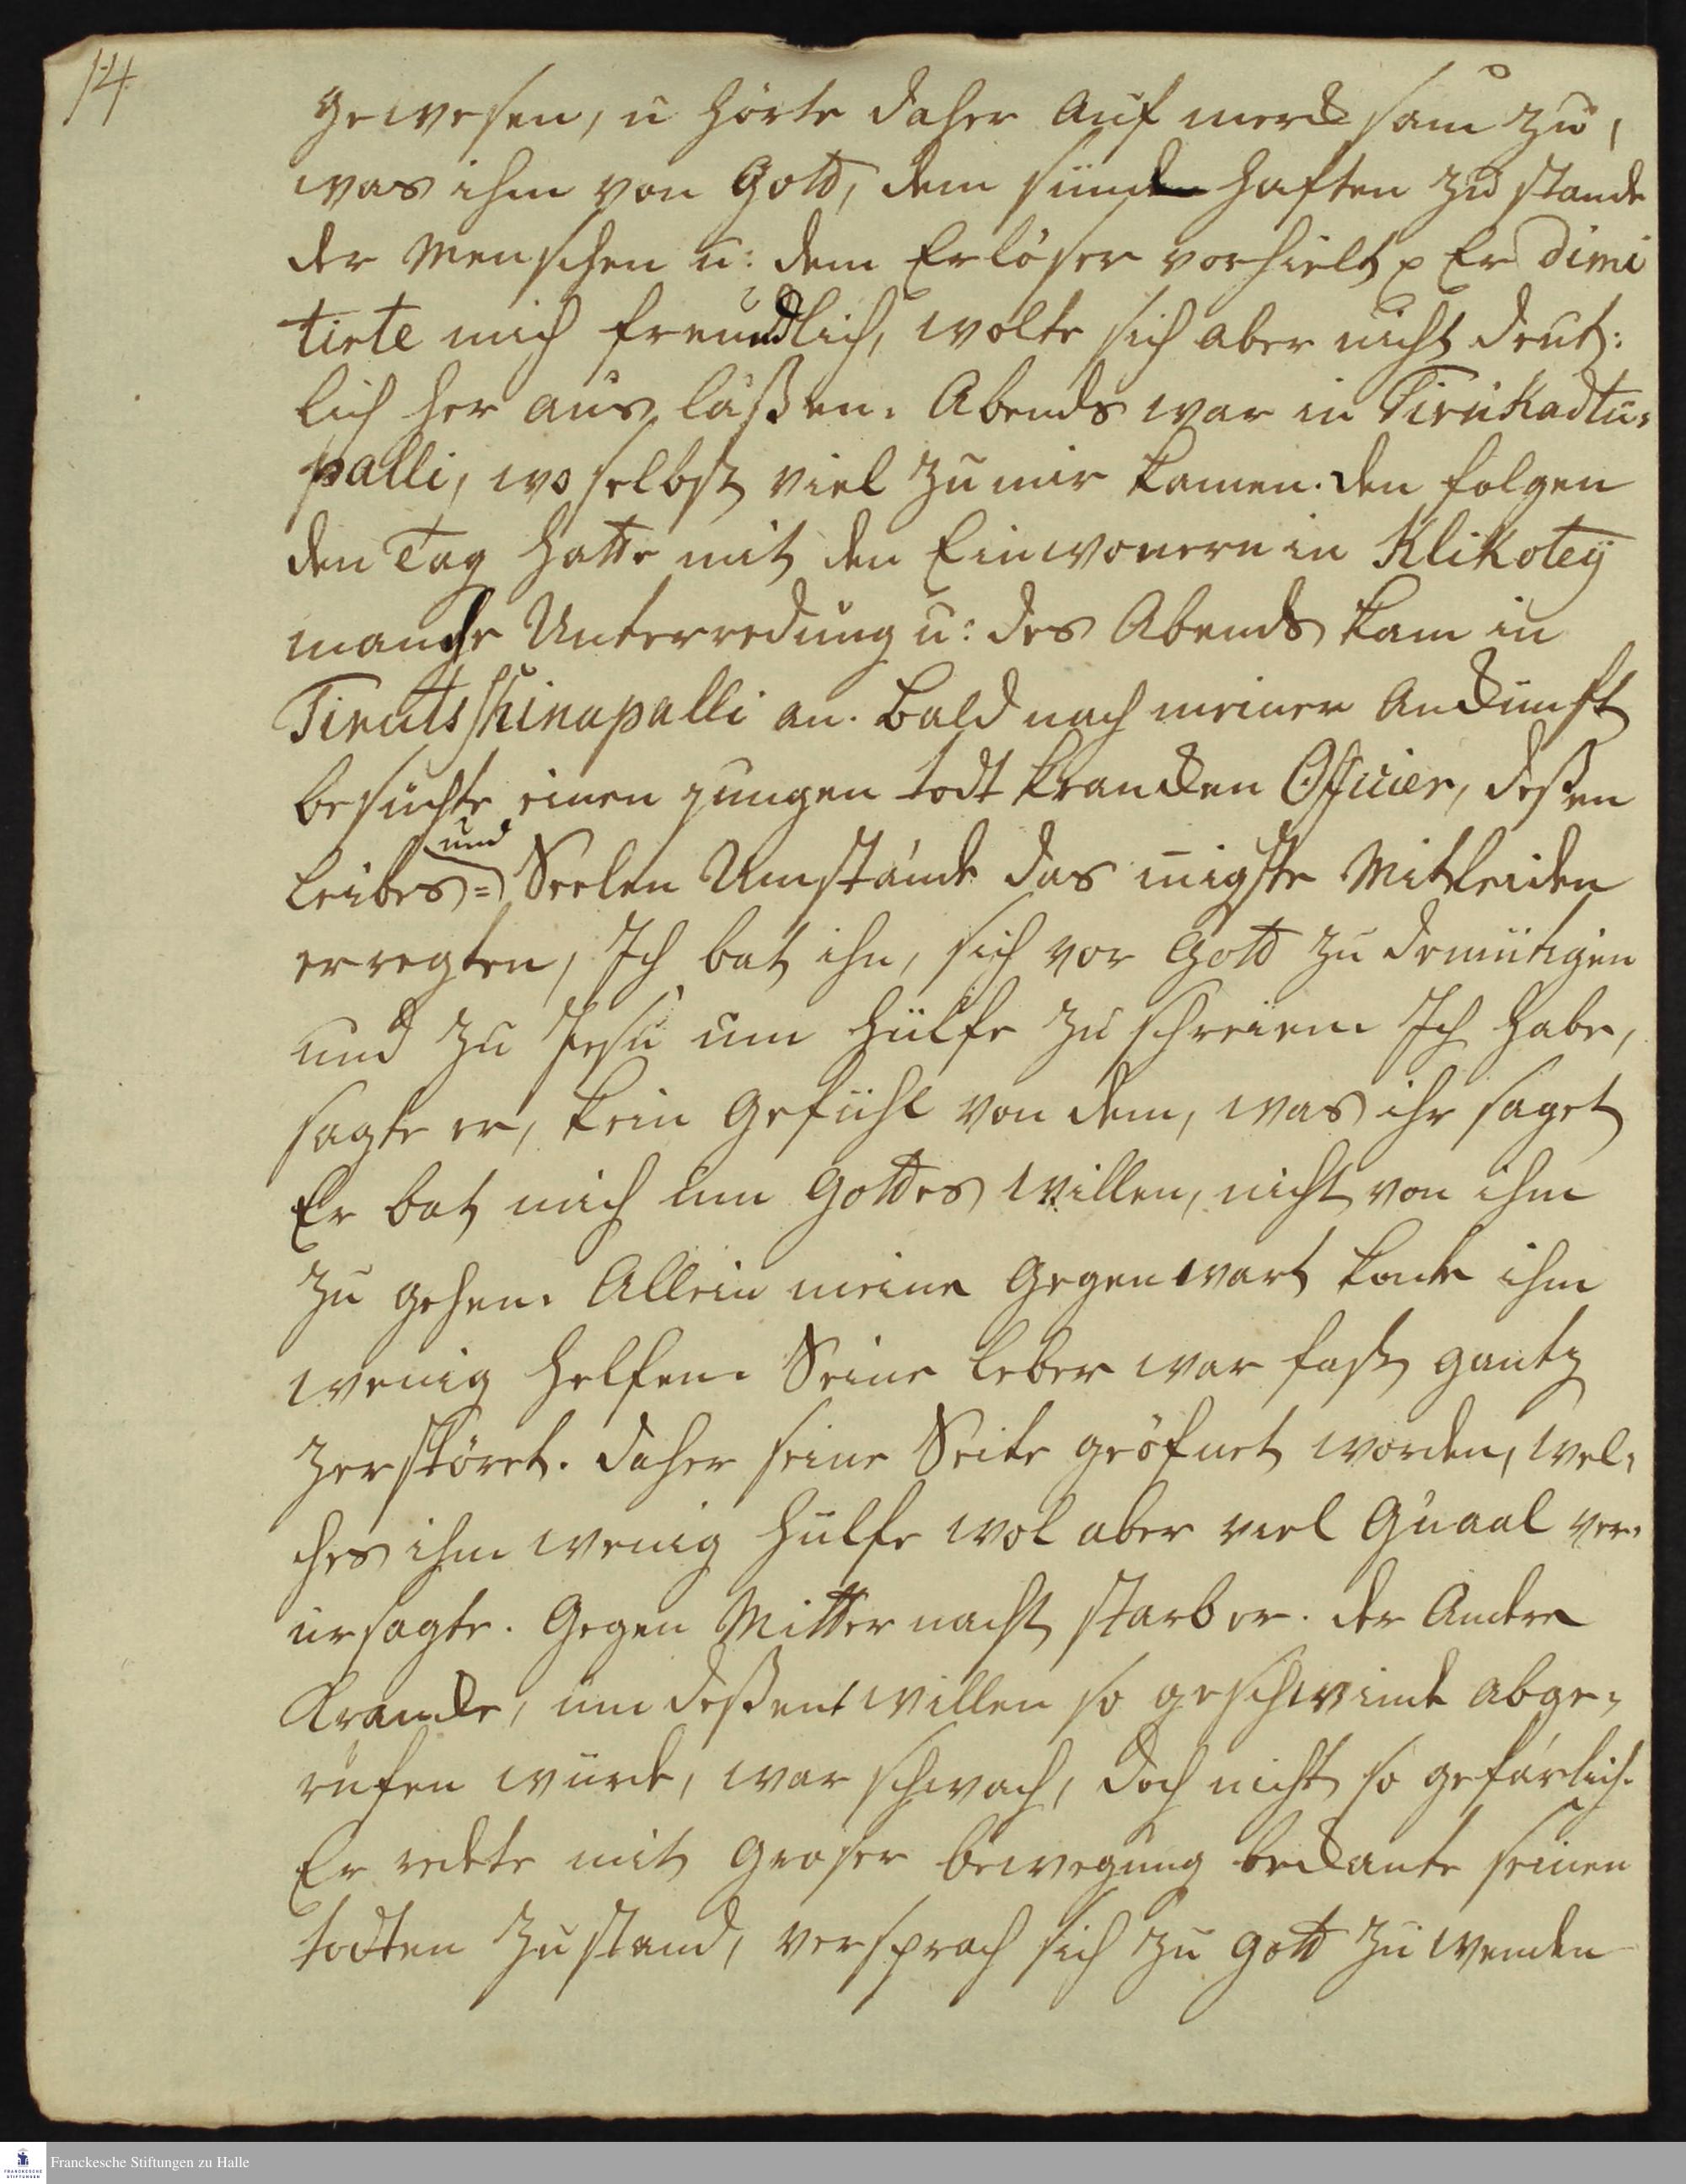 14
gewesen, u hörte daher auf merck sam zu,
was ihm von Gott, dem sünden haften zu stande
der Menschen u: dem Erlöser vorhielt p Er dimi
tirte mich freundlich, wolte sich aber nicht deut:
lich her aus laßen. Abends war in Tirukadtu=
palli, wo selbst viel zu mir kamen. den folgen
den Tag hatte mit den Einwonern in Klikotey
manche Unterredung u: des Abends kam in
Tirutsshinapalli an. Bald nach meiner Anckunft
besuchte einen jungen todt krancken Officier, deßen
und
Leibes= Seelen Umstände das innigste Mitleiden
erregten, Ich bat ihn, sich vor Gott zu demütigen
und zu Jesu um Hülfe zu schreien. Ich habe,
sagte er, kein Gefühl von dem, was ihr saget
Er bat mich um Gottes willen, nicht von ihm
zu gehen. Allein meine Gegenwart konte ihm
wenig helfen. Seine Leber war fast gantz
zerstöret. daher seine Seite geöfnet worden, wel=
ches ihm wenig Hülfe wol aber viel Quaal ver=
ursagte. Gegen Mitter nacht starb er. der Andre
Krancke, um deßent willen so geschwinde abge=
rufen wurde, war schwach, doch nicht so gefärlich.
Er redete mit Groser bewegung bedaute seinen
todten Zustand, versprach sich zu Gott zu wenden
Franckesche Stiftungen zu Halle
FRANCKESCHE
STIFTUNGEN